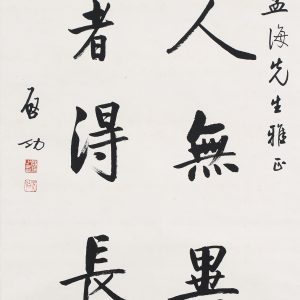 孟海先生雅正
人無
者得長
启功